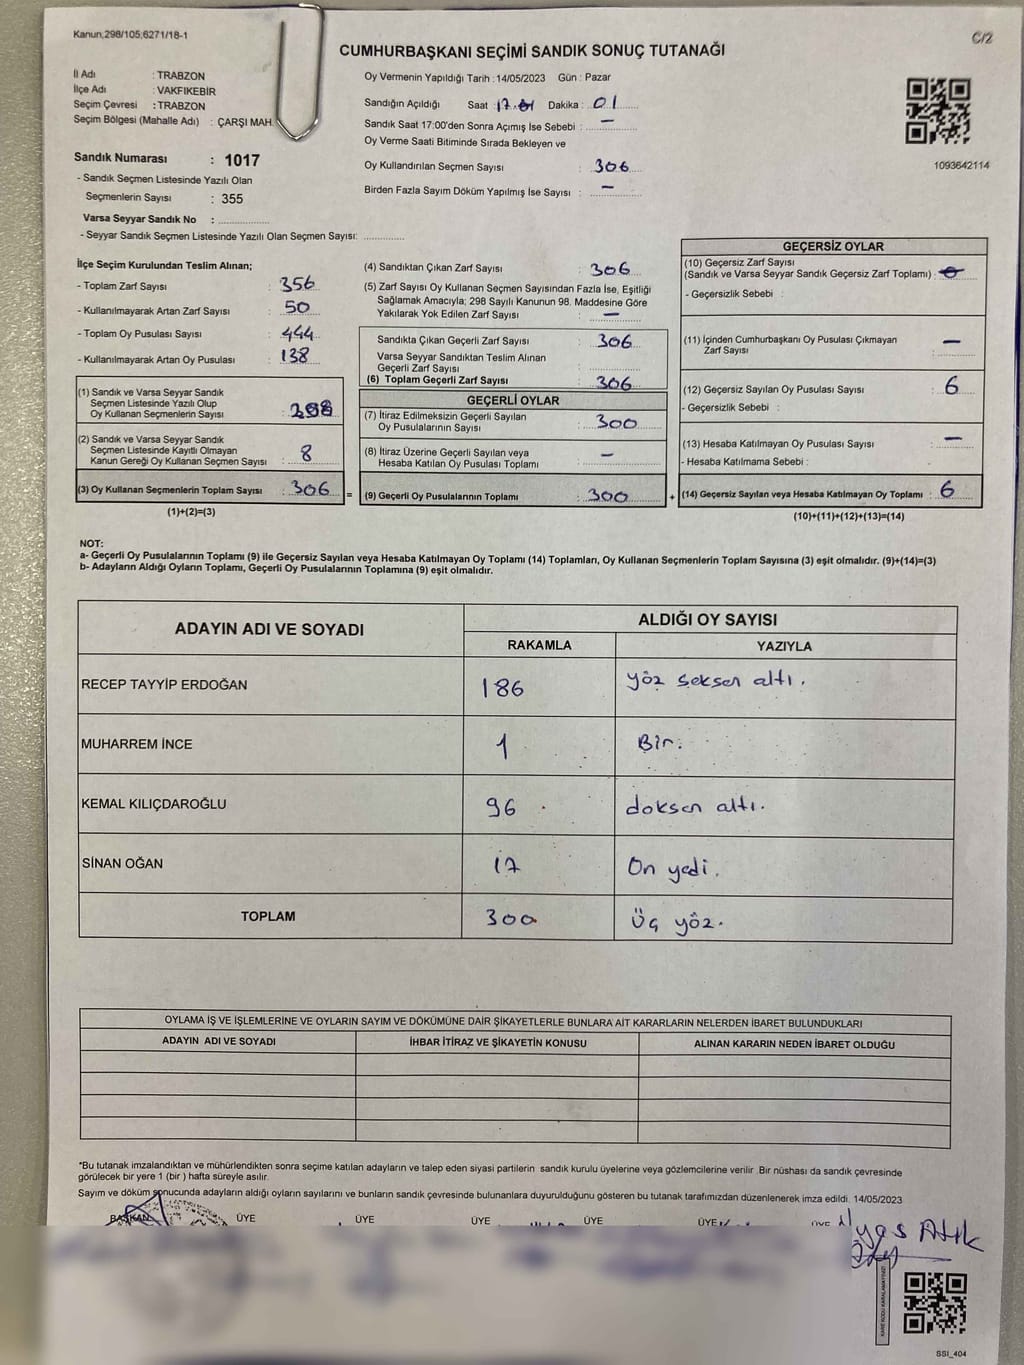 Kanun;298/105;6271/18-1
C/2
CUMHURBAŞKANI SEÇİMİ SANDIK SONUÇ TUTANAĞI
İl Adı : TRABZON
İlçe Adı : VAKFIKEBİR
Seçim Çevresi : TRABZON
Seçim Bölgesi (Mahalle Adı) : ÇARŞI MAH
Oy Vermenin Yapıldığı Tarih : 14/05/2023 Gün : Pazar
Sandığın Açıldığı Saat : 17 Dakika : 01
Sandık Saat 17:00'den Sonra Açımış İse Sebebi : —
Oy Verme Saati Bitiminde Sırada Bekleyen ve
Oy Kullandırılan Seçmen Sayısı : 306
Birden Fazla Sayım Döküm Yapılmış İse Sayısı : —
1093642114
Sandık Numarası : 1017
- Sandık Seçmen Listesinde Yazılı Olan
Seçmenlerin Sayısı : 355
Varsa Seyyar Sandık No :
- Seyyar Sandık Seçmen Listesinde Yazılı Olan Seçmen Sayısı:
İlçe Seçim Kurulundan Teslim Alınan;
- Toplam Zarf Sayısı : 356
- Kullanılmayarak Artan Zarf Sayısı : 50
- Toplam Oy Pusulası Sayısı : 444
- Kullanılmayarak Artan Oy Pusulası : 138
(1) Sandık ve Varsa Seyyar Sandık
Seçmen Listesinde Yazılı Olup
Oy Kullanan Seçmenlerin Sayısı : 298
(2) Sandık ve Varsa Seyyar Sandık
Seçmen Listesinde Kayıtlı Olmayan
Kanun Gereği Oy Kullanan Seçmen Sayısı : 8
(3) Oy Kullanan Seçmenlerin Toplam Sayısı : 306 =
(1)+(2)=(3)
(4) Sandıktan Çıkan Zarf Sayısı : 306
(5) Zarf Sayısı Oy Kullanan Seçmen Sayısından Fazla İse, Eşitliği
Sağlamak Amacıyla; 298 Sayılı Kanunun 98. Maddesine Göre
Yakılarak Yok Edilen Zarf Sayısı : —
Sandıkta Çıkan Geçerli Zarf Sayısı : 306
Varsa Seyyar Sandıktan Teslim Alınan
Geçerli Zarf Sayısı :
(6) Toplam Geçerli Zarf Sayısı : 306
GEÇERLİ OYLAR
(7) İtiraz Edilmeksizin Geçerli Sayılan
Oy Pusulalarının Sayısı : 300
(8) İtiraz Üzerine Geçerli Sayılan veya
Hesaba Katılan Oy Pusulası Toplamı : —
(9) Geçerli Oy Pusulalarının Toplamı : 300 +
GEÇERSİZ OYLAR
(10) Geçersiz Zarf Sayısı
(Sandık ve Varsa Seyyar Sandık Geçersiz Zarf Toplamı) :
- Geçersizlik Sebebi :
(11) İçinden Cumhurbaşkanı Oy Pusulası Çıkmayan
Zarf Sayısı : —
(12) Geçersiz Sayılan Oy Pusulası Sayısı : 6
- Geçersizlik Sebebi :
(13) Hesaba Katılmayan Oy Pusulası Sayısı : —
- Hesaba Katılmama Sebebi :
(14) Geçersiz Sayılan veya Hesaba Katılmayan Oy Toplamı : 6
(10)+(11)+(12)+(13)=(14)
NOT:
a- Geçerli Oy Pusulalarının Toplamı (9) ile Geçersiz Sayılan veya Hesaba Katılmayan Oy Toplamı (14) Toplamları, Oy Kullanan Seçmenlerin Toplam Sayısına (3) eşit olmalıdır. (9)+(14)=(3)
b- Adayların Aldığı Oyların Toplamı, Geçerli Oy Pusulalarının Toplamına (9) eşit olmalıdır.
ADAYIN ADI VE SOYADI
ALDIĞI OY SAYISI
RAKAMLA YAZIYLA
RECEP TAYYİP ERDOĞAN 186 yöz seksen altı.
MUHARREM İNCE 1 Bir.
KEMAL KILIÇDAROĞLU 96 doksan altı.
SİNAN OĞAN 17 On yedi.
TOPLAM 300 Üç yöz.
OYLAMA İŞ VE İŞLEMLERİNE VE OYLARIN SAYIM VE DÖKÜMÜNE DAİR ŞİKAYETLERLE BUNLARA AİT KARARLARIN NELERDEN İBARET BULUNDUKLARI
ADAYIN ADI VE SOYADI İHBAR İTİRAZ VE ŞİKAYETİN KONUSU ALINAN KARARIN NEDEN İBARET OLDUĞU
*Bu tutanak imzalandıktan ve mühürlendikten sonra seçime katılan adayların ve talep eden siyasi partilerin sandık kurulu üyelerine veya gözlemcilerine verilir .Bir nüshası da sandık çevresinde
görülecek bir yere 1 (bir ) hafta süreyle asılır.
Sayım ve döküm sonucunda adayların aldığı oyların sayılarını ve bunların sandık çevresinde bulunanlara duyurulduğunu gösteren bu tutanak tarafımızdan düzenlenerek imza edildi. 14/05/2023
BAŞKAN ÜYE ÜYE ÜYE ÜYE ÜYE ÜYE
İlyas Atik
KARE KODU KARALAMAYINIZ!
SSI_404